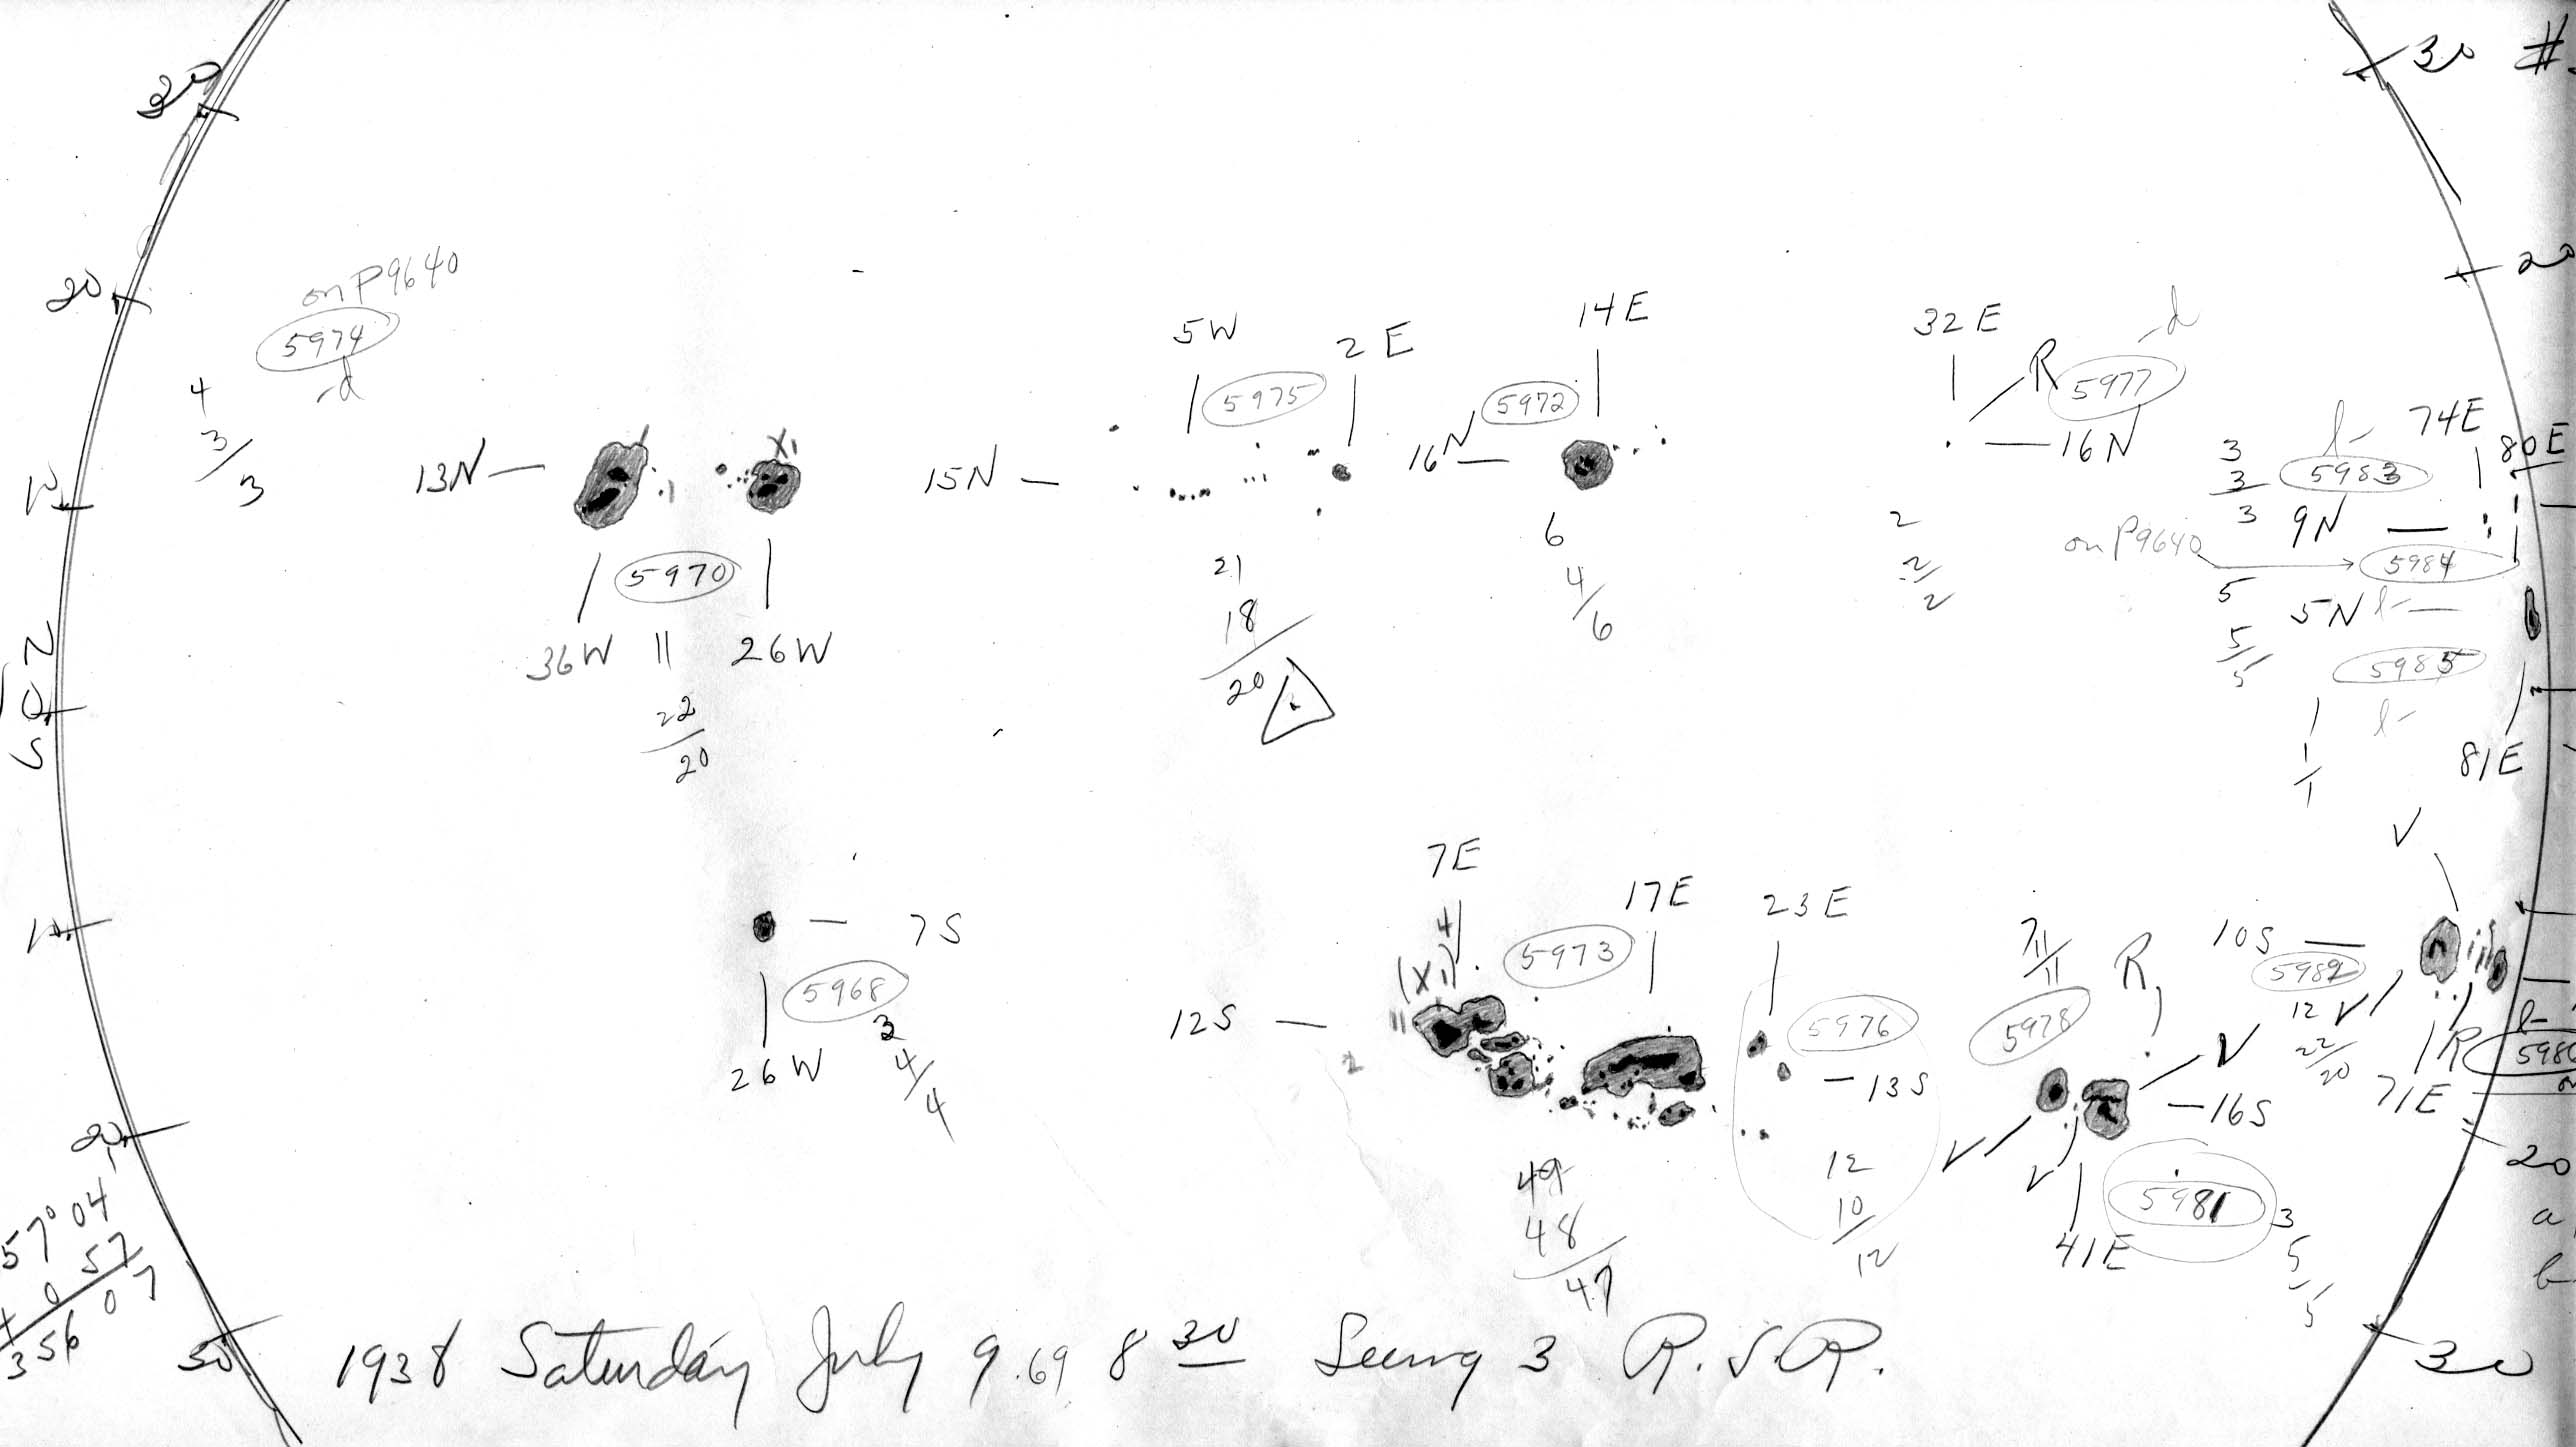 30
30 #
20
20
on P9640
5974
-d
4
3/3
5W
5975
2 E
14E
5972
32E
R
-d
5977
16N
74E
80E
13N
X1
15N
16N
3
3
3
5983
9N
5970
36W 11 26W
22/20
21
18
20
6
4/6
2
2/2
on P9640
5984
5N
5
5/5
5985
1
1/1
81E
N
0
S
7S
5968
26W
3
4/4
7E
4
(X1)
5973
17E
23E
12S
11
5976
13S
49
48/47
12
10/12
7
11/11
R
5978
V
V
V
16S
5981
41E
3
5/5
V
10S
5982
12 V
22/20
71E
R
20
20
a
b
57° 04
0 57
356 07
30
30
1938 Saturday July 9.69 8 30 Seeing 3 R.S.R.